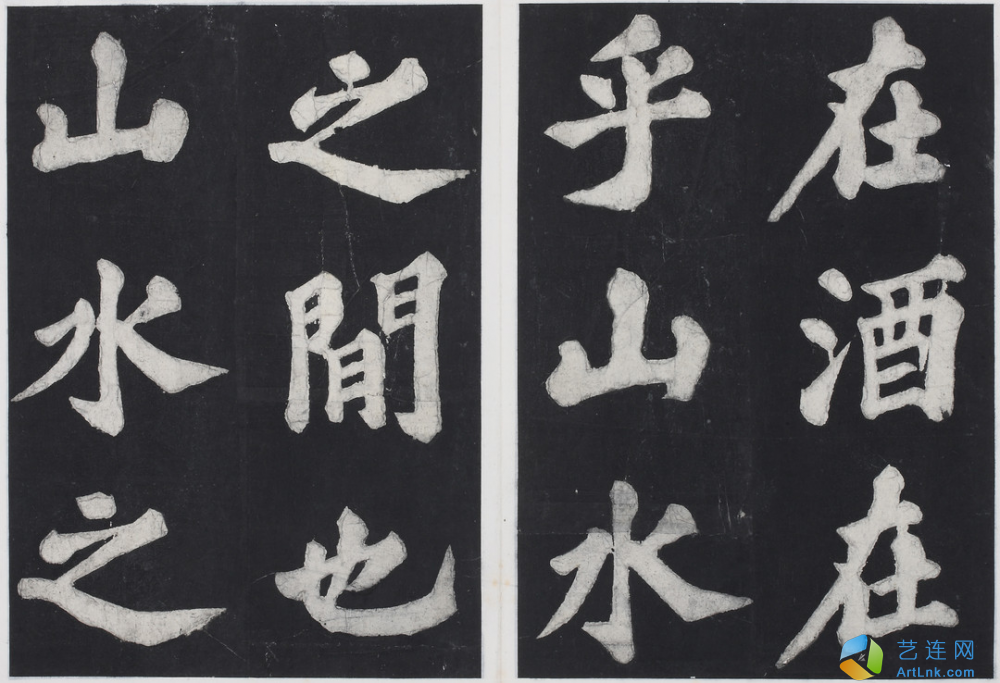 在酒在
乎山水
之間也
山水之
艺连网
ArtLnk.com